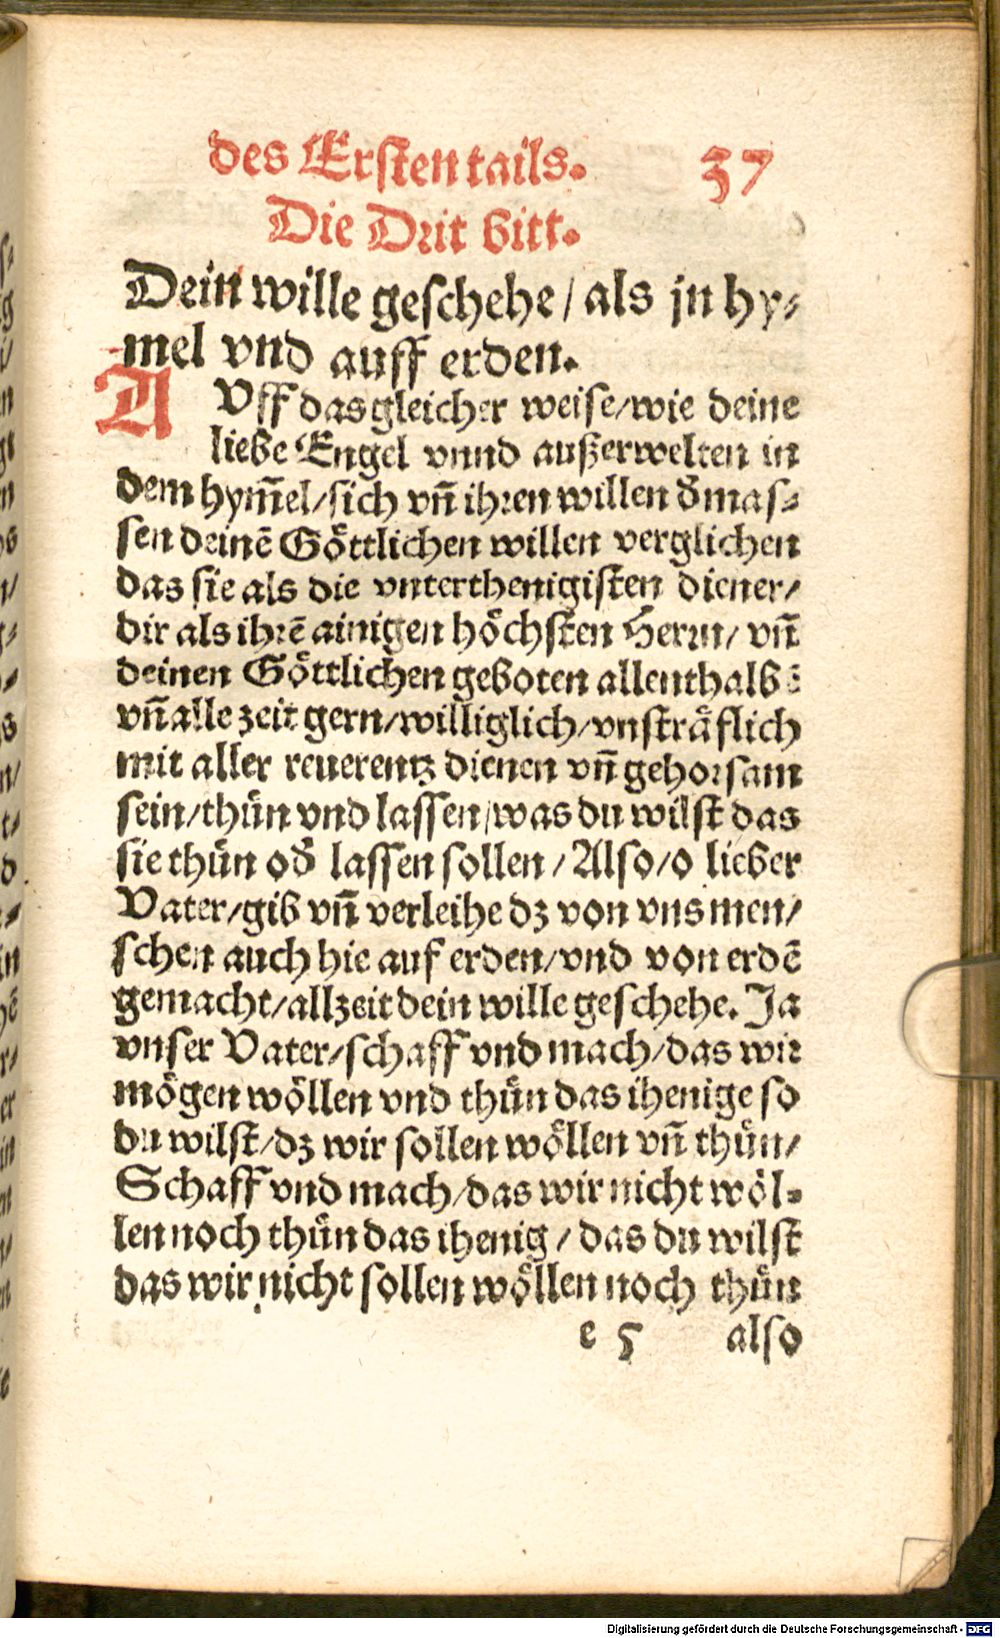 des Ersten tails. 37
Die Drit bitt.
Dein wille geschehe / als jn hy⸗
mel vnd auff erden.
AVff das gleicher weise/wie deine
liebe Engel vnnd außerwelten in
dem hym̃el/sich vñ ihren willen d̃mas⸗
sen deinē Göttlichen willen verglichen
das sie als die vnterthenigisten diener/
dir als ihrē ainigen höchsten Herrn/ vñ
deinen Göttlichen geboten allenthalbē
vñ alle zeit gern/williglich/vnsträflich
mit aller reuerentz dienen vñ gehorsam
sein/thůn vnd lassen/was du wilst das
sie thůn od̃ lassen sollen / Also/o lieber
Vater/gib vñ verleihe dz von vns men/
schen auch hie auf erden/vnd von erdē
gemacht/allzeit dein wille geschehe. Ja
vnser Vater/schaff vnd mach/das wir
mögen wöllen vnd thůn das ihenige so
du wilst/dz wir sollen wöllen vñ thůn/
Schaff vnd mach/das wir nicht wöl⸗
len noch thůn das ihenig / das du wilst
das wir nicht sollen wöllen noch thůn
e 5 also
Digitalisierung gefördert durch die Deutsche Forschungsgemeinschaft - DFG